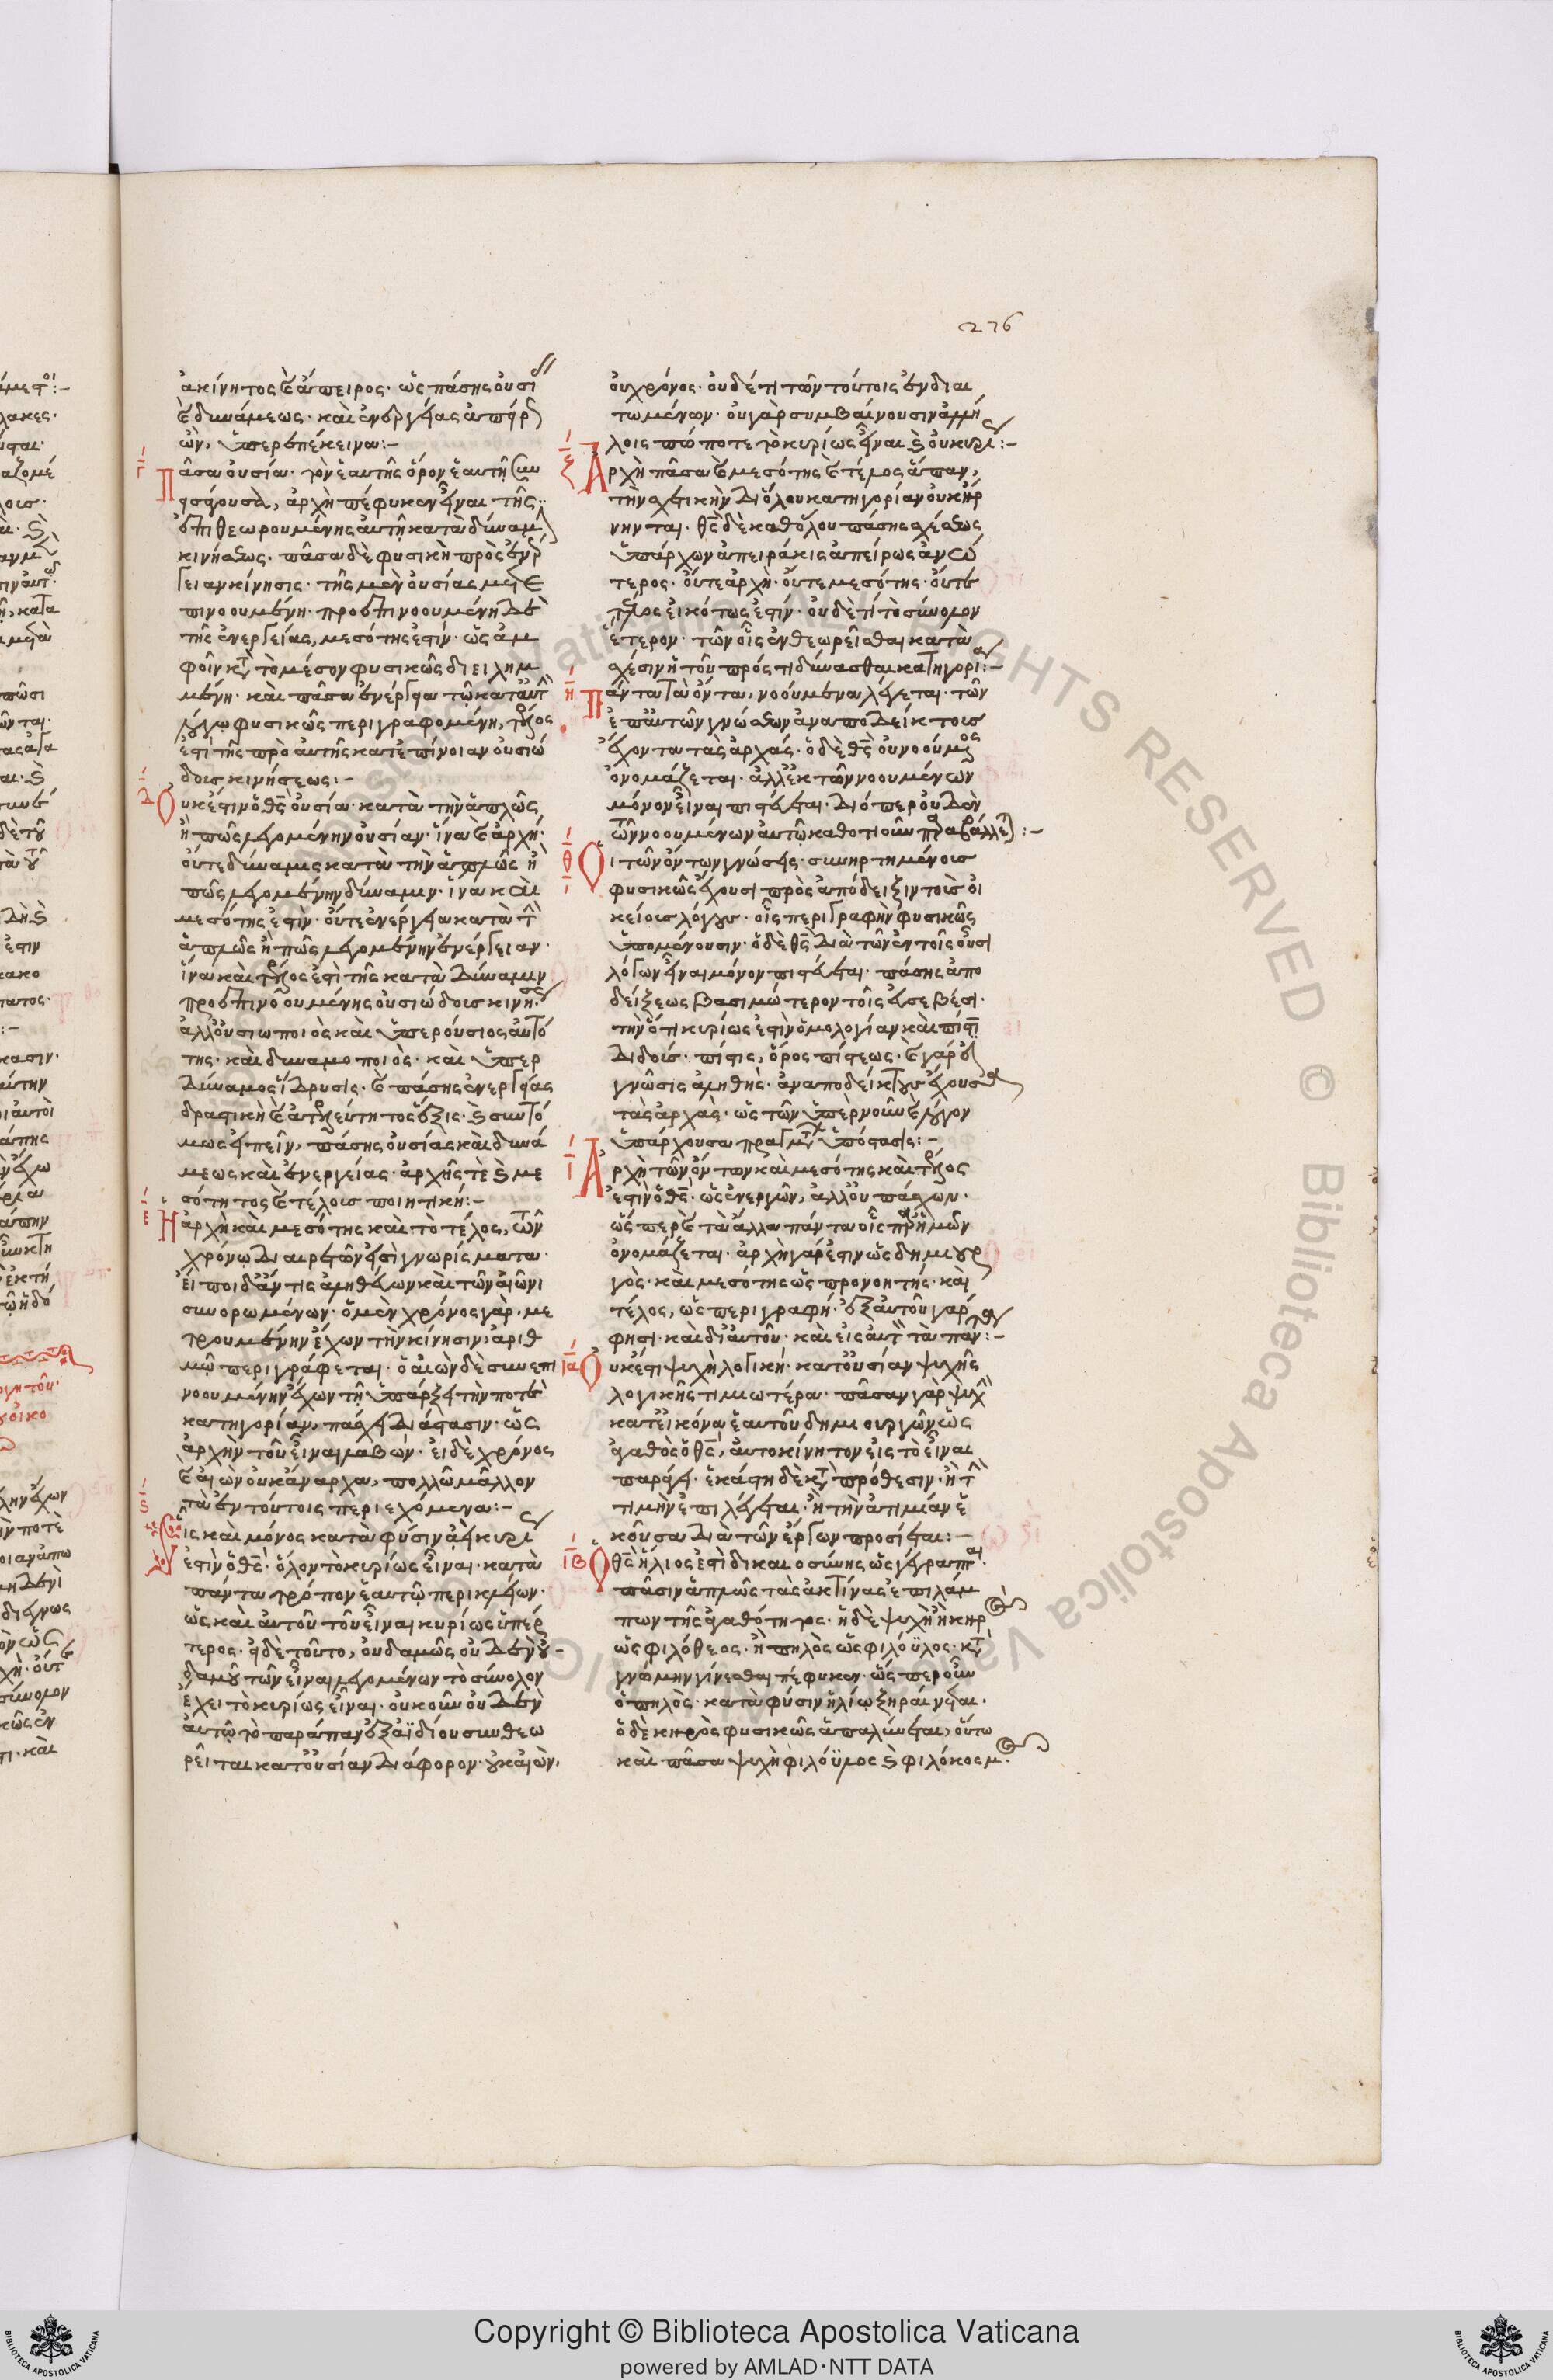 276
ἀκίνητος καὶ ἄπειρος· ὡς πάσης οὐσί
καὶ δυνάμεως· καὶ ἐνεργείας ἀπείρ
ὢν, ὑπερεπέκεινα:-
Γ Πᾶσα οὐσία· τὸν ἑαυτῆς ὅρον ἑαυτῇ συν
εισφέρουσα, ἀρχὴ πέφυκεν εἶναι τῆς
ἐπιθεωρουμένης αὐτῇ κατὰ δύναμ
κινήσεως· πᾶσα δὲ φυσικὴ πρὸς ἐνέρ
γειαν κίνησις· τῆς μὲν οὐσίας μετε
πινοουμένη· προεπινοουμένη δὲ
τῆς ἐνεργείας, μεσότης ἐστίν· ὡς ἀμ
φοῖν κατὰ τὸ μέσον φυσικῶς διειλημ
μένη· καὶ πᾶσα ἐνέργεια τῷ κατ' αὐτὴν
λόγῳ φυσικῶς περιγραφομένη, τέλος
ἐστὶ τῆς πρὸ αὐτῆς κατ' ἐπίνοιαν οὐσιώ
δους κινήσεως:-
Δ Οὐκ ἔστιν ὁ θς οὐσία· κατὰ τὴν ἁπλῶς
ἢ πῶς λεγομένην οὐσίαν· ἵνα καὶ ἀρχή·
οὔτε δύναμις κατὰ τὴν ἁπλῶς ἢ
πῶς λεγομένην δύναμιν· ἵνα καὶ
μεσότης ἐστὶν· οὔτε ἐνέργεια κατὰ τὴν
ἁπλῶς ἢ πῶς λεγομένην ἐνέργειαν·
ἵνα καὶ τέλος ἐστὶ τῆς κατὰ δύναμιν
προεπινοουμένης οὐσιώδους κινήσεως
ἀλλ' οὐσιωποιὸς καὶ ὑπερούσιος ὀντό
της· καὶ δυναμοποιὸς· καὶ ὑπερ
δύναμος ἵδρυσις· καὶ πάσης ἐνεργείας
δραστικὴ καὶ ἀτελεύτητος ἕξις· καὶ συντό
μως εἰπεῖν, πάσης οὐσίας καὶ δυνά
μεως καὶ ἐνεργείας· ἀρχῆς τὲ καὶ με
σότητος καὶ τέλους ποιητική:-
Ε Ἡ ἀρχὴ καὶ μεσότης καὶ τὸ τέλος, τῶν
χρόνῳ διαιρετῶν εἰσὶ γνωρίσματα·
εἴποι δ' ἄν τις ἀληθεύων καὶ τῶν αἰῶνι
συνορωμένων· ὁ μὲν χρόνος γὰρ, με
τρουμένην ἔχων τὴν κίνησιν, ἀριθ
μῷ περιγράφεται· ὁ αἰὼν δὲ συνεπι
νοουμένην ἔχων τῇ ὑπάρξει τὴν ποτὲ
κατηγορίαν, πάσχει διάστασιν· ὡς
ἀρχὴν τοῦ εἶναι λαβών· εἰ δὲ χρόνος
καὶ αἰὼν οὐκ ἄναρχα, πολλῷ μᾶλλον
τὰ ἐν τούτοις περιεχόμενα:-
Ϛ Εἷς καὶ μόνος κατὰ φύσιν ἀεὶ κυρί
ἐστὶν ὁ θς· ὅλον τὸ κυρίως εἶναι· κατὰ
πάντα τρόπον ἑαυτῷ περικλείων·
ὡς καὶ αὐτοῦ τοῦ εἶναι κυρίως ὑπέρ
τερος· εἰ δὲ τοῦτο, οὐδαμῶς οὐδὲν οὐ
δαμοῦ τῶν εἶναι λεγομένων τὸ σύνολον
ἔχει τὸ κυρίως εἶναι· οὐκοῦν οὐδὲν
αὐτῷ τὸ παράπαν ἐξ ἀϊδίου συνθεω
ρεῖται κατ' οὐσίαν διάφορον· οὐκ αἰὼν,
οὐ χρόνος· οὐδέ τι τῶν τούτοις ἐνδιαι
τωμένων· οὐ γὰρ συμβαίνουσιν ἀλλή
λοις πώποτε τὸ κυρίως εἶναι καὶ οὐ κυρί:-
Ζ Ἀρχὴ πᾶσα καὶ μεσότης καὶ τέλος ἅπαν,
τὴν σχετικὴν δι' ὅλου κατηγορίαν οὐκ ἤρ
νηνται· θς δὲ καθόλου πάσης σχέσεως
ὑπάρχων ἀπειράκις ἀπείρως ἀνώ
τερος· οὔτε ἀρχὴ· οὔτε μεσότης· οὔτε
τέλος εἰκότως ἐστίν· οὐδὲ τί τὸ σύνολον
ἕτερον· τῶν οἷς ἐνθεωρεῖσθαι κατὰ
σχέσιν ἡ τοῦ πρός τι δύνασθαι κατηγορία:-
Η Πάντα τὰ ὄντα, νοούμενα λέγεται· τῶν
ἐπ' αὐτῶν γνώσεων ἀναποδείκτους
ἔχοντα τὰς ἀρχάς· ὁ δὲ θς οὐ νοούμενος
ὀνομάζεται· ἀλλ' ἐκ τῶν νοουμένων
μόνον εἶναι πιστεύεται· διόπερ οὐδὲν
τῶν νοουμένων αὐτῷ καθοτιοῦν παραβάλλεται:-
Θ Αἱ τῶν ὄντων γνώσεις· συνηρτημένους
φυσικῶς ἔχουσι πρὸς ἀπόδειξιν τοὺς οἰ
κείους λόγους· οἷς περιγραφὴν φυσικῶς
ὑπομένουσιν· ὁ δὲ θς διὰ τῶν ἐν τοῖς οὖσι
λόγων εἶναι μόνον πιστεύεται· πάσης ἀπο
δείξεως βασιμώτερον τοῖς εὐσεβέσι·
τὴν ὅτι κυρίως ἐστὶν ὁμολογίαν καὶ πίστιν
διδούς· πίστις, ὅρος πίστεως· καὶ γὰρ
γνῶσις ἀληθής· ἀναποδείκτους ἔχουσα
τὰς ἀρχὰς· ὡς τῶν ὑπὲρ νοῦν καὶ λόγον
ὑπάρχουσα πραγμάτων ὑπόστασις:-
Ι Ἀρχὴ τῶν ὄντων καὶ μεσότης καὶ τέλος
ἐστὶν ὁ θς· ὡς ἐνεργῶν, ἀλλ' οὐ πάσχων·
ὥσπερ καὶ τὰ ἄλλα πάντα οἷς παρ' ἡμῶν
ὀνομάζεται· ἀρχὴ γάρ ἐστιν ὡς δημιουρ
γὸς· καὶ μεσότης ὡς προνοητής· καὶ
τέλος, ὡς περιγραφή· ἐξ αὐτοῦ γάρ
φησι· καὶ δι' αὐτοῦ· καὶ εἰς αὐτὸν τὰ πάντα:-
ΙΑ Οὐκ ἔστι ψυχὴ λογική· κατ' οὐσίαν ψυχῆς
λογικῆς τιμιωτέρα· πᾶσαν γὰρ ψυχὴν
κατ' εἰκόνα ἑαυτοῦ δημιουργῶν ὡς
ἀγαθὸς ὁ θς, αὐτοκίνητον εἰς τὸ εἶναι
παράγει· ἑκάστη δὲ κατὰ πρόθεσιν· ἢ τὴν
τιμὴν ἐπιλέγεται· ἢ τὴν ἀτιμίαν ἑ
κοῦσα διὰ τῶν ἔργων προσίεται:-
ΙΒ Ὁ θς ἥλιος ἐστὶ δικαιοσύνης ὡς γέγραπται·
πᾶσιν ἁπλῶς τὰς ἀκτῖνας ἐπιλάμ
πων τῆς ἀγαθότητος· ἡ δὲ ψυχὴ ἢ κηρ
ὡς φιλόθεος· ἢ πηλὸς ὡς φιλόϋλος· κατὰ
γνώμην γίνεσθαι πέφυκεν· ὥσπερ οὖν
ὁ πηλὸς· κατὰ φύσιν ἡλίῳ ξηραίνεται·
ὁ δὲ κηρὸς φυσικῶς ἁπαλύνεται, οὕτω
καὶ πᾶσα ψυχὴ φιλόϋλος καὶ φιλόκοσμ
Copyright © Biblioteca Apostolica Vaticana
powered by AMLAD·NTT DATA